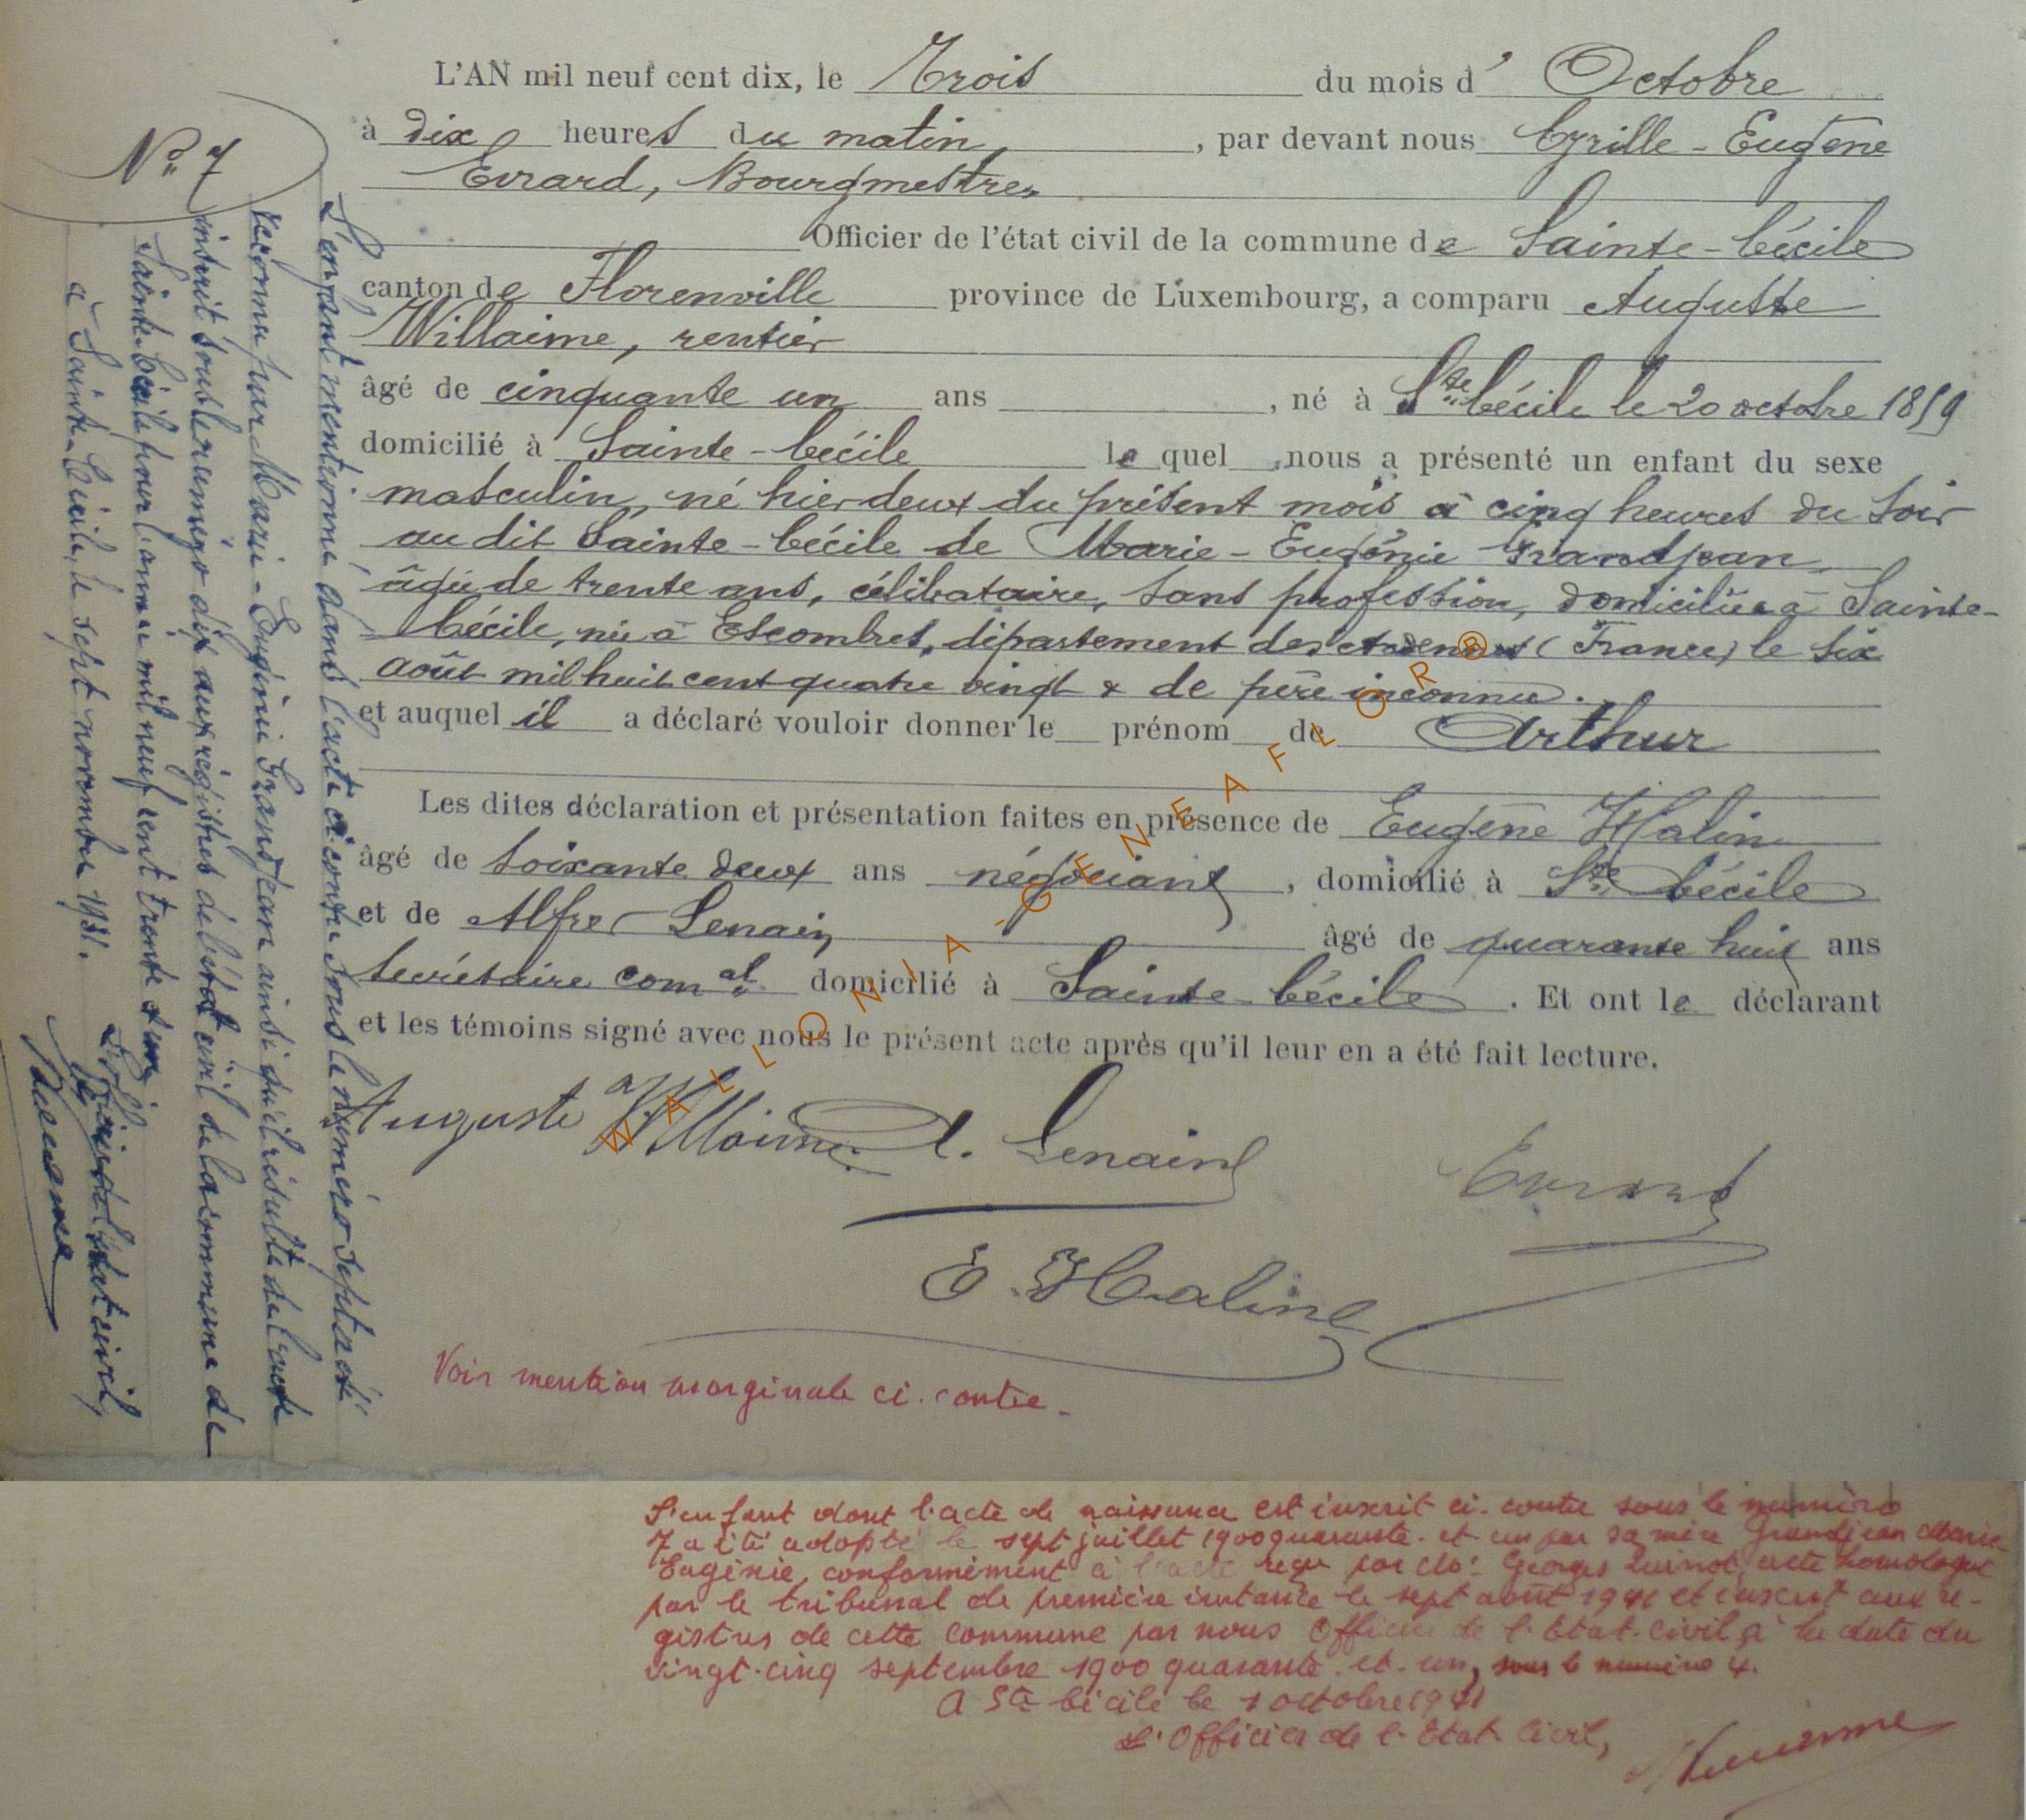 L'AN mil neuf cent dix, le Trois du mois d' Octobre
à dix heures du matin, par devant nous Cyrille-Eugène
Evrard, Bourgmestre,
Officier de l'état civil de la commune de Sainte-Cécile
canton de Florenville province de Luxembourg, a comparu Auguste
Willaime, rentier
âgé de cinquante un ans , né à Ste Cécile le 20 octobre 1859
domicilié à Sainte-Cécile le quel nous a présenté un enfant du sexe
masculin, né hier deux du présent mois à cinq heures du soir
au dit Sainte-Cécile de Marie-Eugénie Grandjean
âgée de trente ans, célibataire, sans profession, domiciliée à Sainte-
Cécile, née à Escombres, département des Ardennes (France) le six
août mil huit cent quatre vingt & de père inconnu.
et auquel il a déclaré vouloir donner le prénom de Arthur
Les dites déclaration et présentation faites en présence de Eugène Halin
âgé de soixante deux ans négociant, domicilié à Ste Cécile
et de Alfred Lenain âgé de quarante huit ans
secrétaire comal domicilié à Sainte-Cécile. Et ont le déclarant
et les témoins signé avec nous le présent acte après qu'il leur en a été fait lecture.
Auguste Willaime A. Lenain
Evrard
E. Halin
Voir mention marginale ci-contre
No 7
L'enfant mentionné dans l'acte ci-contre sous le numéro sept a été
reconnu par Marie-Eugénie Grandjean ainsi qu'il résulte de l'acte
inscrit sous le numéro dix aux registres de l'état civil de la commune de
Sainte-Cécile pour l'année mil neuf cent trente & un
à Sainte-Cécile, le sept novembre 1931.
L'officier de l'état civil,
L'enfant dont l'acte de naissance est inscrit ci-contre sous le numéro
7 a été adopté le sept juillet 1900 quarante-et-un par sa mère Grandjean Marie-
Eugénie, conformément à l'acte reçu par Me Georges acte homologué
par le tribunal de première instance le sept août 1941 et inscrit aux re-
gistres de cette commune par nous Officier de l'Etat-civil à la date du
vingt-cinq septembre 1900 quarante-et-un, sous le numéro 4.
A Ste Cécile le 1 octobre 1941
L'Officier de l'Etat Civil,
WALLONIA-GENEAFLOR®